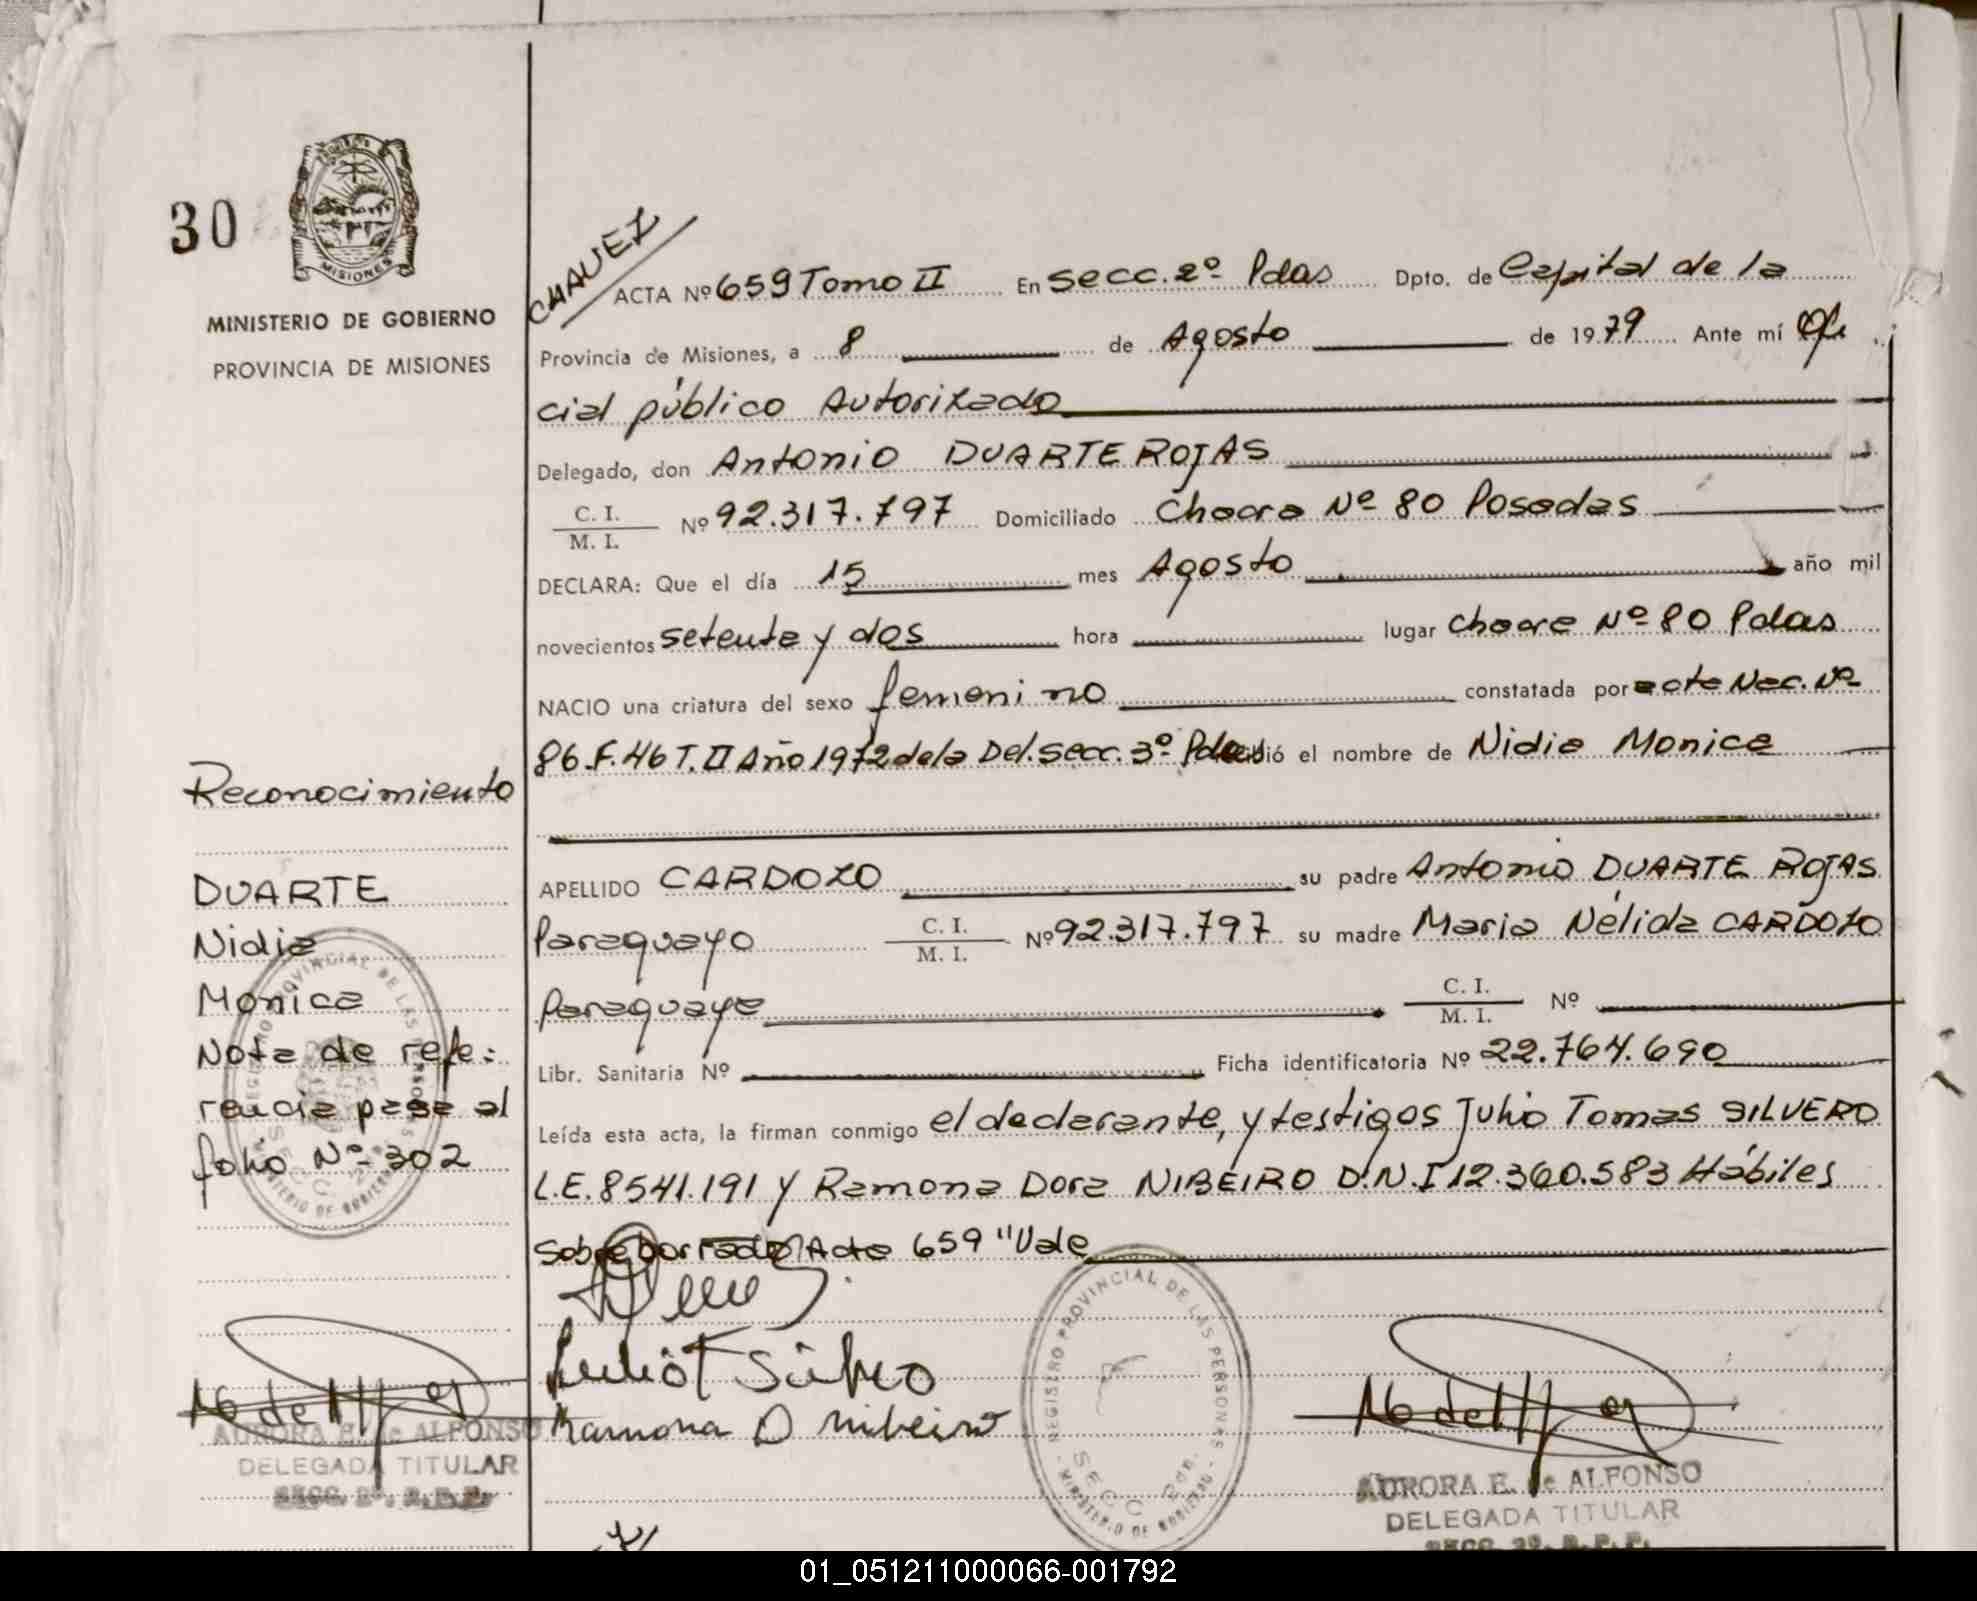 30
MISIONES
MINISTERIO DE GOBIERNO
PROVINCIA DE MISIONES
Reconocimiento
DUARTE
Nidia
Monica
Nota de refe:
rencia pasa al
folio Nº 302
REGISTRO PROVINCIAL DE LAS PERSONAS
MINISTERIO DE GOBIERNO
AURORA E. de ALFONSO
DELEGADA TITULAR
SECC. 2º. R.P.P.
CHAVEZ
ACTA Nº 659 Tomo II En Secc. 2º Pdas Dpto. de Capital de la
Provincia de Misiones, a 8 de Agosto de 1979 Ante mí Ofi
cial público Autorizado
Delegado, don Antonio DUARTE ROJAS
C. I.
M. I.
Nº 92.317.797 Domiciliado Chacra Nº 80 Posadas
DECLARA: Que el día 15 mes Agosto año mil
novecientos setenta y dos hora lugar Chacra Nº 80 Pdas
NACIO una criatura del sexo femenino constatada por acta Nac. Nº
86.F.46 T.II Año 1972 de la Del. Secc. 3º Pdas ió el nombre de Nidia Monica
APELLIDO CARDOZO su padre Antonio DUARTE ROJAS
Paraguayo C. I.
M. I.
Nº 92.317.797 su madre Maria Nélida CARDOZO
Paraguaya C. I.
M. I.
Nº
Libr. Sanitaria Nº Ficha identificatoria Nº 22.764.690
Leída esta acta, la firman conmigo el declarante, y testigos Julio Tomas SILVERO
L.E. 8541.191 y Ramona Dora NIBEIRO D.N.I 12.360.583 Hábiles
Sobre borrado Acta 659 "Vale
Julio T Silvero
Ramona D Nibeiro
REGISTRO PROVINCIAL DE LAS PERSONAS
SECC 2da.
MINISTERIO DE GOBIERNO
AURORA E. de ALFONSO
DELEGADA TITULAR
SECC. 2º. R.P.P.
01_051211000066-001792